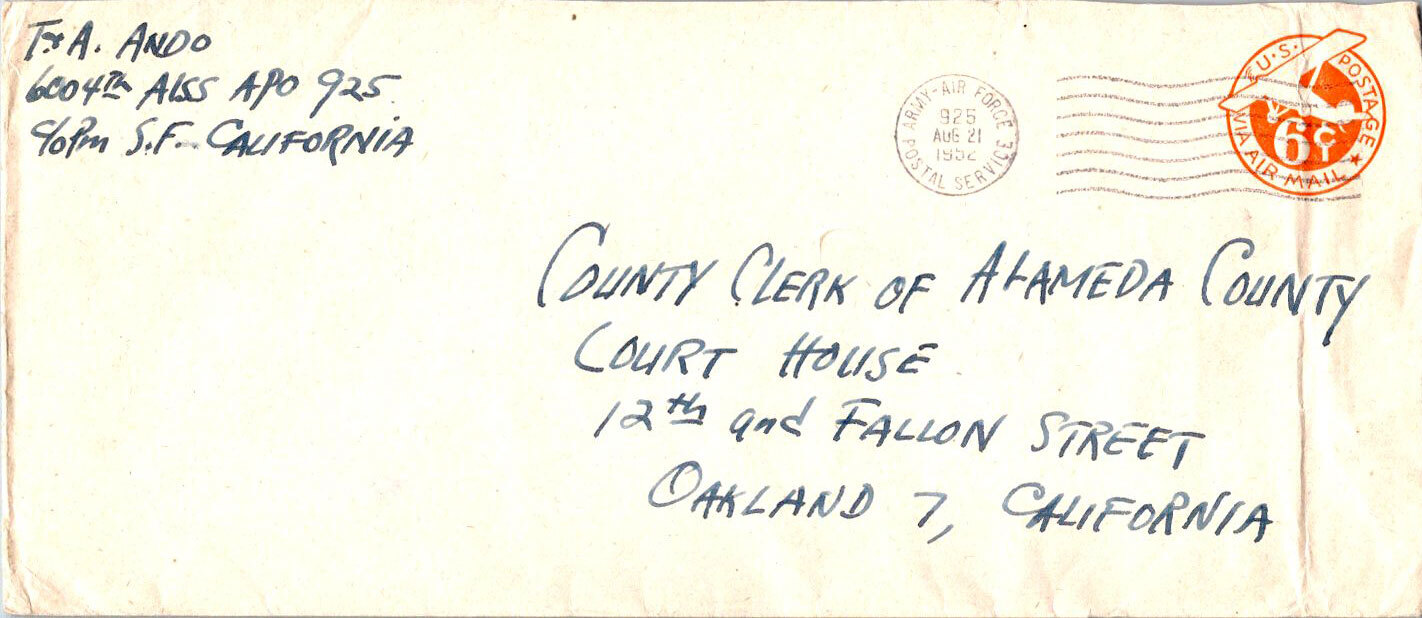 T. A. ANDO
6004th AISS APO 925
c/o Pm S.F. CALIFORNIA
ARMY-AIR FORCE
925
AUG 21
1952
POSTAL SERVICE
U.S. POSTAGE
6c
VIA AIR MAIL
COUNTY CLERK OF ALAMEDA COUNTY
COURT HOUSE
12th and FALLON STREET
OAKLAND 7, CALIFORNIA